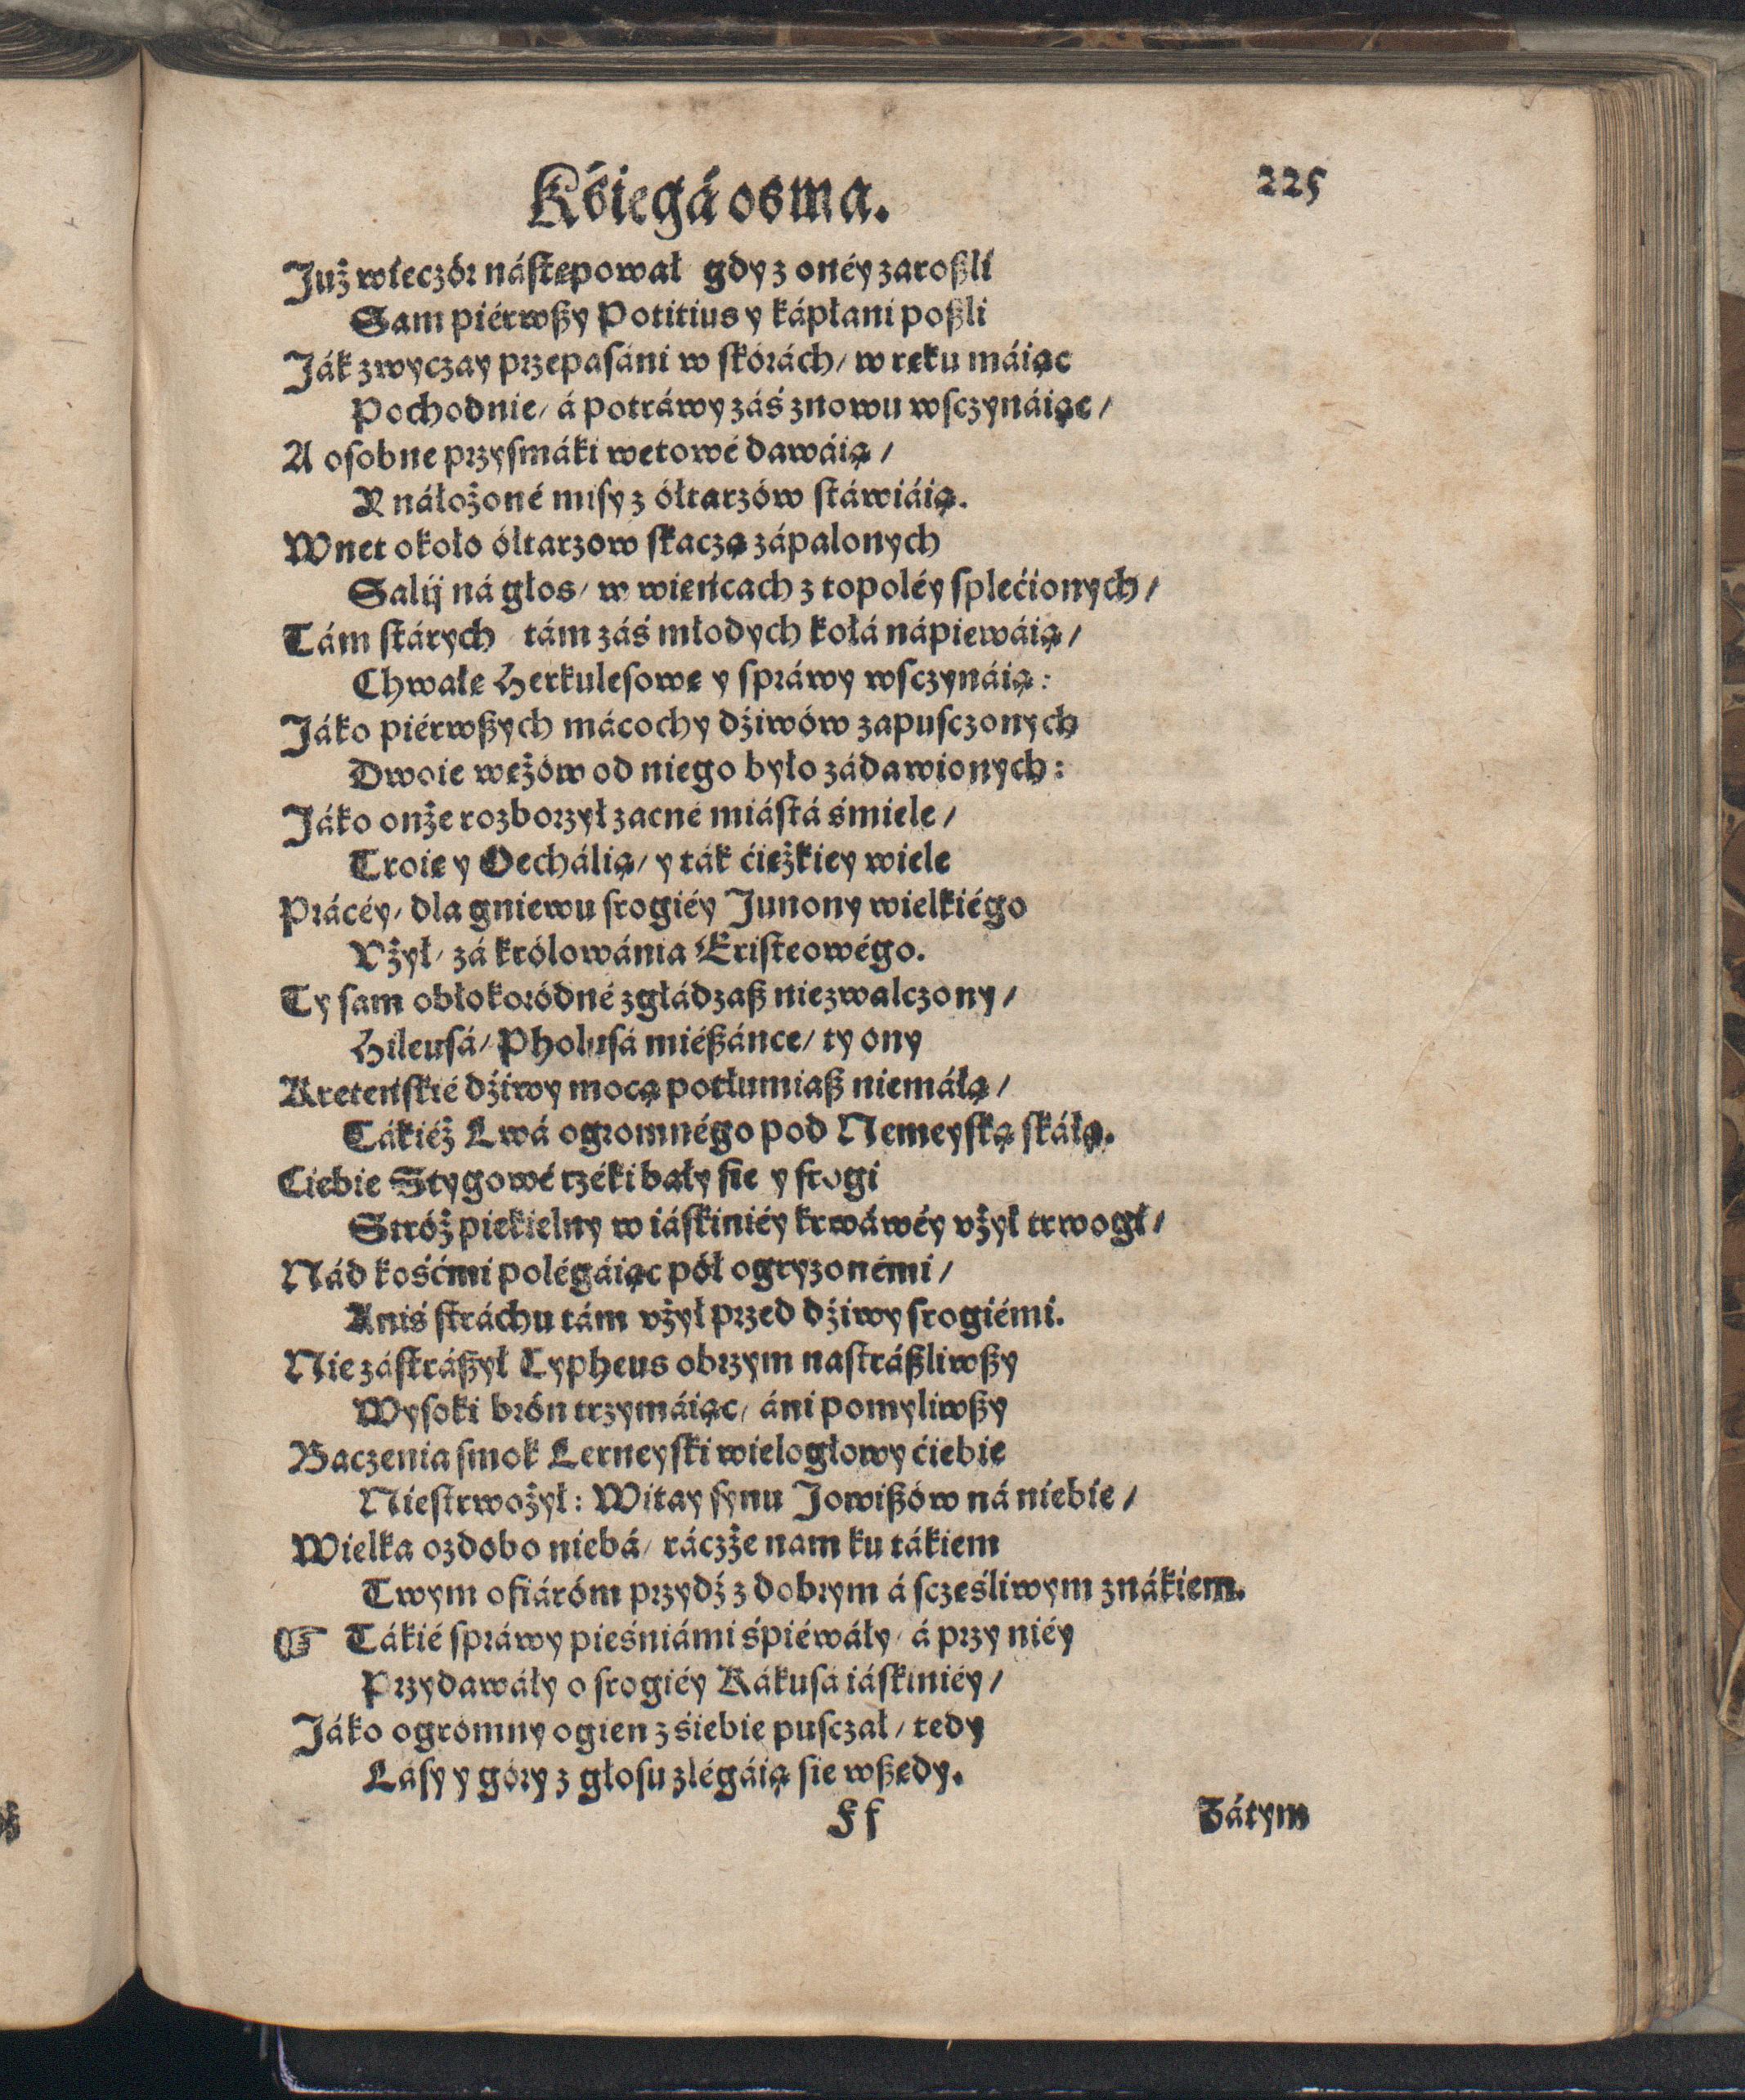 Kśięgá osma.
225
Już wieczór nástępował gdy z onéy zaroßli
Sam piérwßy Potitius y kápłani poßli
Ják zwyczay przepasáni w skórách/ w ręku máiąc
Pochodnie/ á potráwy záś znowu wsczynáiąc/
A osobne przysmáki wetowé dawáią/
Y náłożoné misy z ółtarzów stáwiáią.
Wnet około ółtarzow skaczą zápalonych
Salij ná głos/ w wieńcach z topoléy splećionych/
Tám stárych tám záś młodych kołá nápiewáią/
Chwałę Herkulesowę y spráwy wsczynáią:
Jáko piérwßych mácochy dźiwów zapusczonych
Dwoie wężów od niego było zádawionych:
Jáko onże rozborzył zacné miástá śmiele/
Troię y Oechálią/ y ták ćiężkiey wiele
Prácéy/ dla gniewu srogiéy Junony wielkiégo
Vżył/ zá królowánia Eristeowégo.
Ty sam obłokoródné zgłádzaß niezwalczony/
Hileusá/ Pholusá miéßánce/ ty ony
Kreteńskié dźiwy mocą potłumiaß niemáłą/
Tákiéż Lwá ogromnégo pod Nemeyską skáłą.
Ciebie Stygowé rzéki bały się y srogi
Stróż piekielny w iáskiniéy krwáwéy vżył trwogi/
Nád kośćmi polégáiąc pół ogryzonémi/
Aniś stráchu tám vżył przed dźiwy srogiémi.
Nie zástráßył Typheus obrzym nastráßliwßy
Wysoki brón trzymáiąc/ áni pomyliwßy
Baczenia smok Lerneyski wielogłowy ćiebie
Niestrwożył: Witay synu Jowißów ná niebie/
Wielka ozdobo niebá/ ráczże nam ku tákiem
Twym ofiáróm przydź z dobrym á sczęśliwym znákiem.
☞ Tákié spráwy pieśniámi śpiéwáły/ á przy niéy
Przydawáły o srogiéy Kákusá iáskiniéy/
Jáko ogromny ogien z śiebie pusczał/ tedy
Lásy y góry z głosu zlégáią się wßędy.
Ff
Zátym